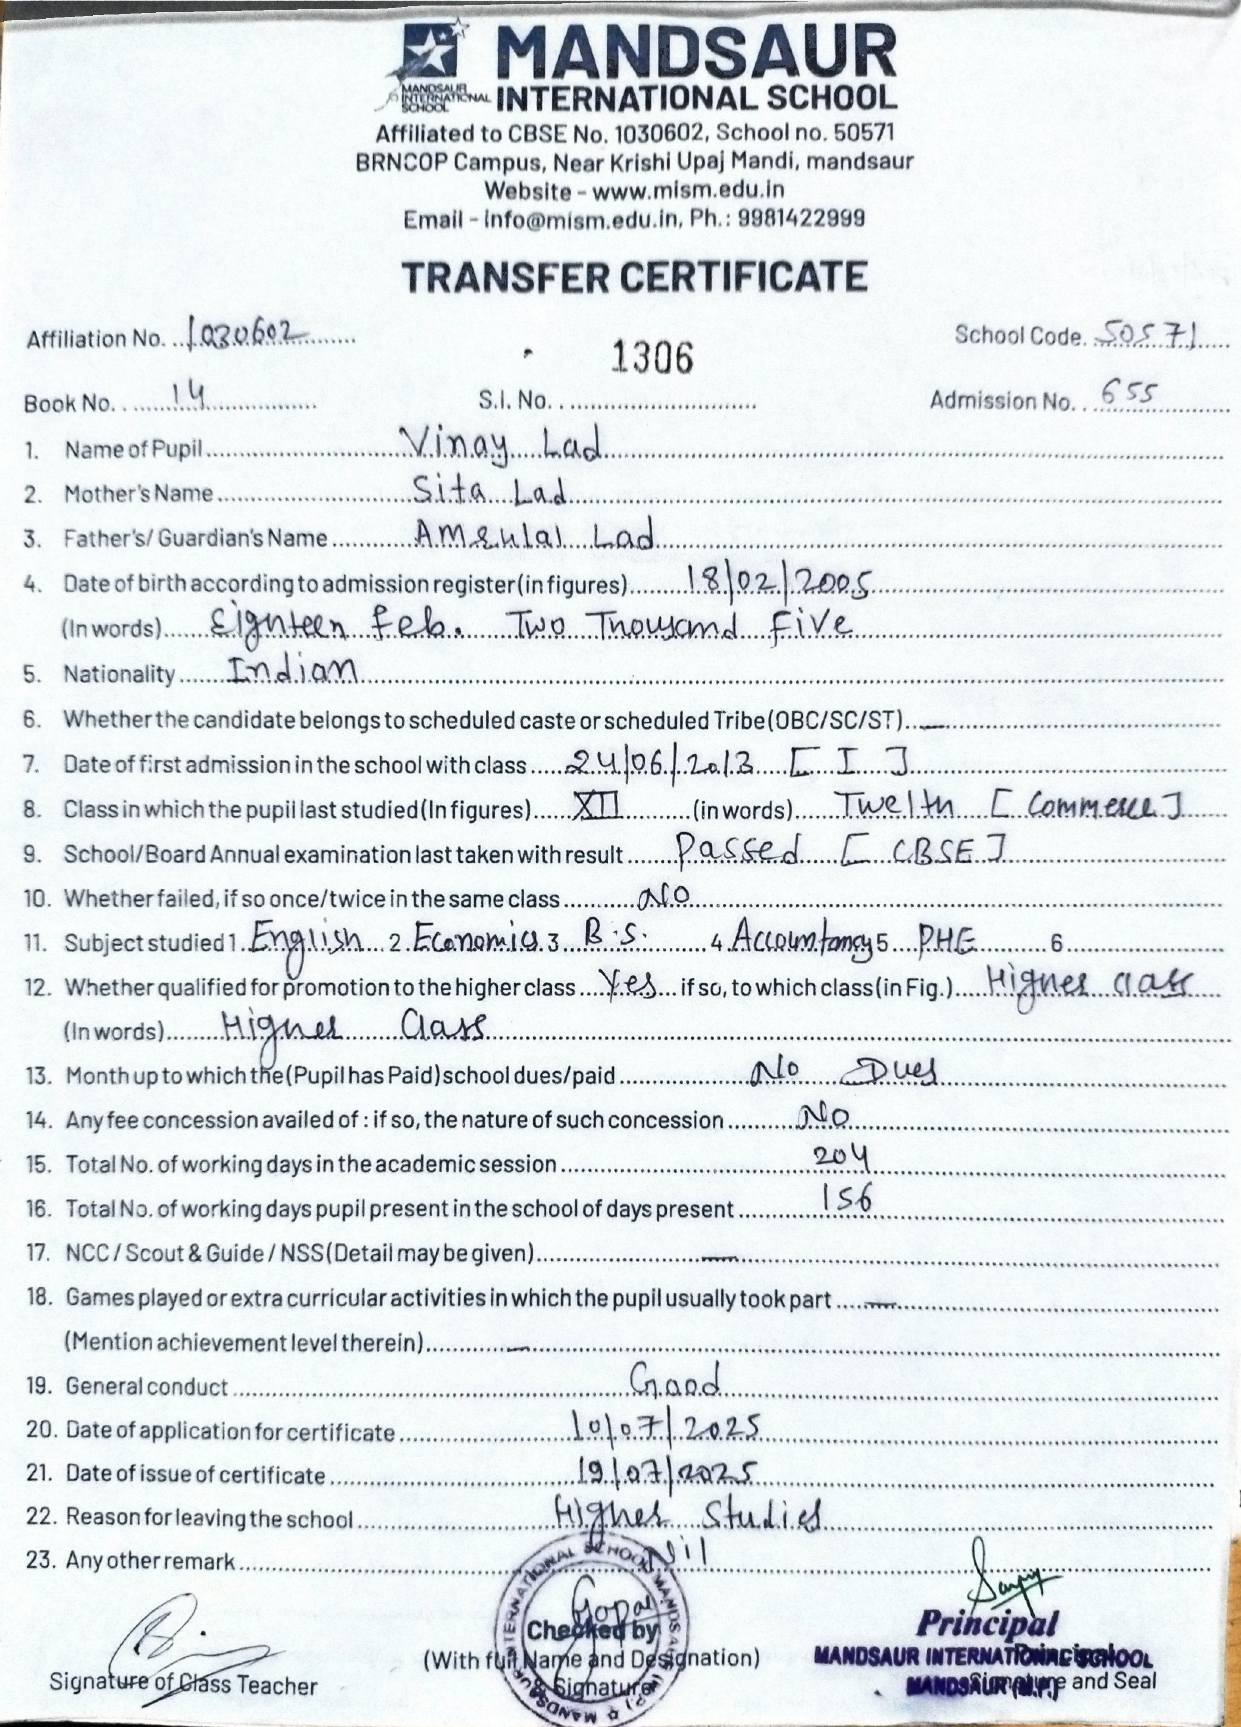 MANDSAUR
MANDSAUR INTERNATIONAL SCHOOL
INTERNATIONAL SCHOOL
Affiliated to CBSE No. 1030602, School no. 50571
BRNCOP Campus, Near Krishi Upaj Mandi, mandsaur
Website - www.mism.edu.in
Email - info@mism.edu.in, Ph.: 9981422999
TRANSFER CERTIFICATE
Affiliation No. 1030602 School Code. 50571
1306
Book No. 14 S.I. No. Admission No. 655
1. Name of Pupil Vinay Lad
2. Mother's Name Sita Lad
3. Father's/ Guardian's Name Lad
4. Date of birth according to admission register(in figures) 18/02/2005
(In words) Eighteen Feb. Two Thousand Five
5. Nationality Indian
6. Whether the candidate belongs to scheduled caste or scheduled Tribe(OBC/SC/ST) —
7. Date of first admission in the school with class 24/06/2013 [ I ]
8. Class in which the pupil last studied(In figures) XII (in words) Twelth [ Commerce ]
9. School/Board Annual examination last taken with result Passed [ CBSE ]
10. Whether failed, if so once/twice in the same class NO
11. Subject studied 1. English 2. Economics 3. B.S. 4. Accountancy 5. PHE 6
12. Whether qualified for promotion to the higher class Yes if so, to which class(in Fig.) Higher Class
(In words) Higher Class
13. Month up to which the(Pupil has Paid)school dues/paid No Dues
14. Any fee concession availed of : if so, the nature of such concession No
15. Total No. of working days in the academic session 204
16. Total No. of working days pupil present in the school of days present 156
17. NCC / Scout & Guide / NSS(Detail may be given) —
18. Games played or extra curricular activities in which the pupil usually took part —
(Mention achievement level therein) —
19. General conduct Good
20. Date of application for certificate 10/07/2025
21. Date of issue of certificate 19/07/2025
22. Reason for leaving the school Higher Studies
23. Any other remark Nil
MANDSAUR INTERNATIONAL SCHOOL MANDSAUR (M.P.)
Gopal
Checked by
(With full Name and Designation)
& Signature
Signature of Class Teacher
Principal
MANDSAUR INTERNATIONAL SCHOOL
MANDSAUR (M.P.)
Principal
Signature and Seal